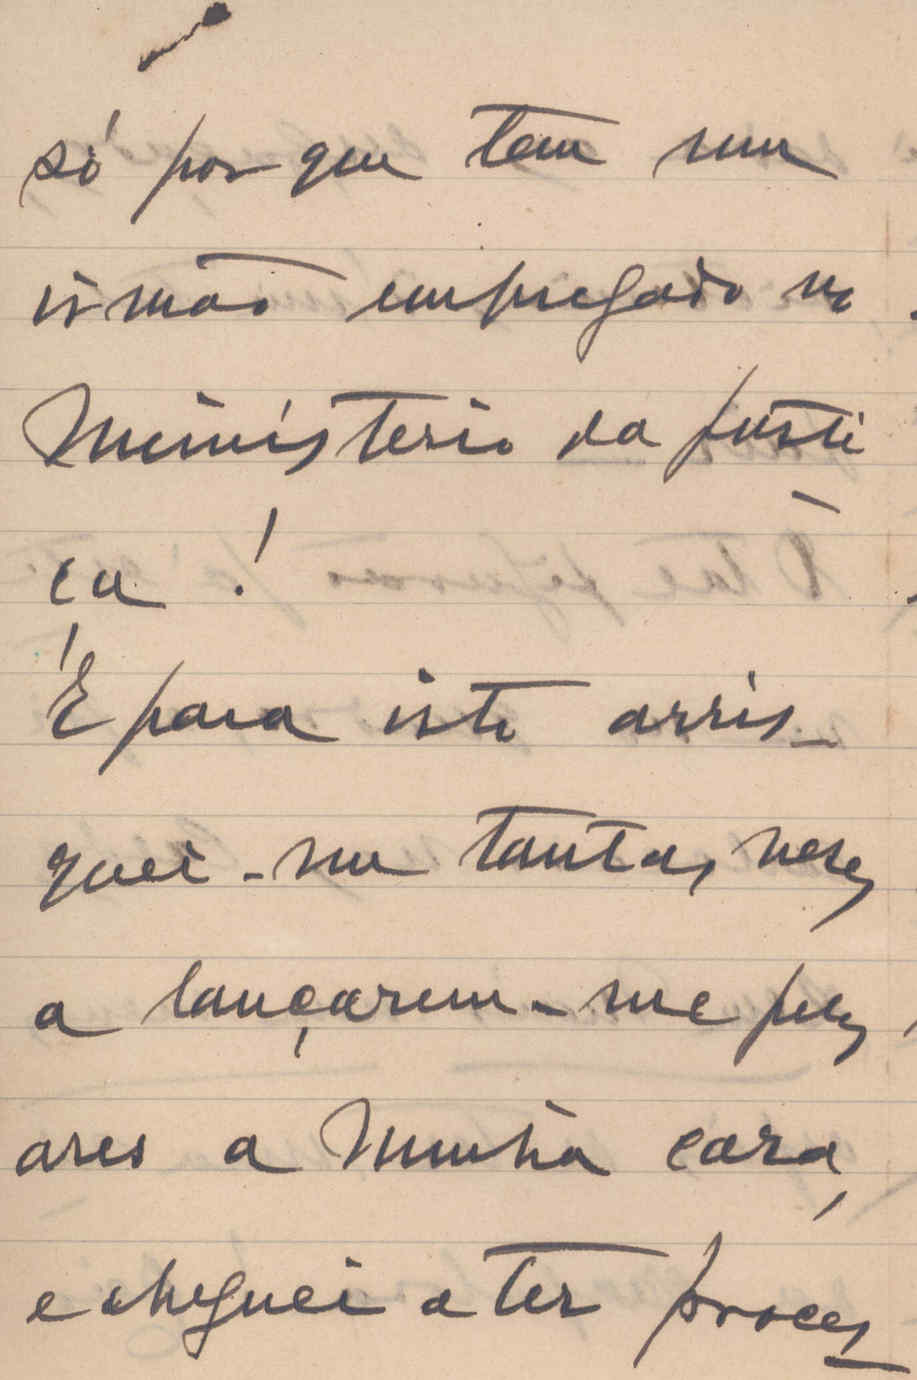 só porque tem um
irmão empregado no
Ministerio da Justi
ca!
É para isto arris-
quei-me tantas vezes
a lançarem-me pelos
ares a minha casa,
e cheguei a ter proces